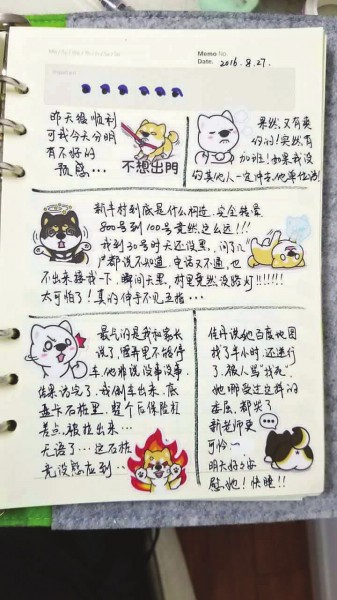 Memo No.
Date. 2016.8.27.
昨天很顺利
可我今天分明
有不好的
预感...
不想出門
果然,又有爽
约的!突然有
加班!如果我没
的其他人一定冲车,他单位活!
新丰村到底是什么构造,完全转晕
800号到100号竟然这么远!!!
我到30号时天还没黑,问了几
户都说不知道,电话又不通,也
不出来接我一下,瞬间天黑,村里竟然没路灯!!!!!!
太可怕了!真的伸手不见五指...
最气的是我和家长
说了,里不能停
车,他非说没事没事
结果访完了,我倒车出来,底
盘卡石柱里,整个后保险杠
差点被拉出来...
无语了...这石柱
竟没感应到...
佳丹说她百度地图
找了半小时,还进行
了,被人骂"找死",
她哪受过这样的
委屈,都哭了
新老师更
可怜~
明天好好安
慰她!快睡!!